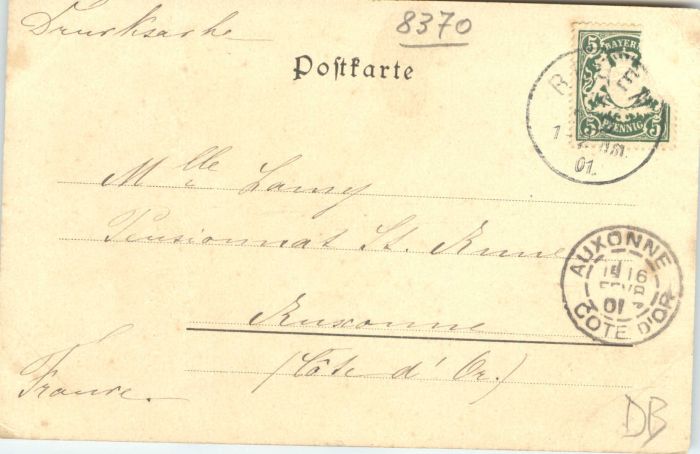 Drucksache
8370
Postkarte
5 BAYERN
5 PFENNIG 5
1
01.
Mlle Lamy
Pensionnat St. Anne
Auxonne
(Côte d'Or.)
France.
AUXONNE
16
FEVR
01
COTE D'OR
DB